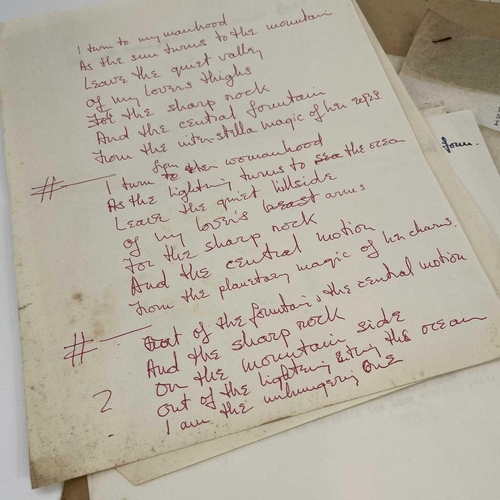 I turn to my manhood
As the sun turns to the mountain
Leave the quiet valley
Of my lovers thighs
For the sharp rock
And the central fountain
From the inter-stella magic of her eyes.
# I turn from womanhood
As the lightning turns to the ocean
Leave the quiet hillside
Of my lovers arms
For the sharp rock
And the central motion
From the planetary magic of her charms.
# Out of the fountain & the central motion
And the sharp rock
2 On the mountain side
Out of the lightning & the ocean
I am the unhungering One
foun.